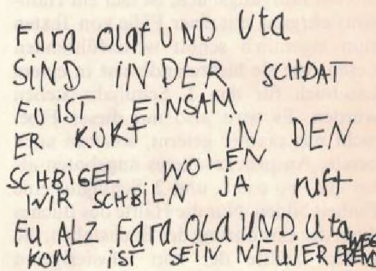 Fara Olaf UND Uta
SIND IN DER SCHDAT
FU IST EINSAM
ER KUKT IN DEN
SCHBIGEL WOLEN
WIR SCHBILN JA ruft
FU ALZ Fara OLa UND Uta WEG
KOM IST SEIN NEUJER FREND